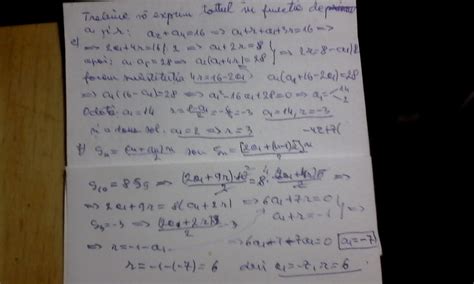 Trebuie să exprim totul în functie de
a₁ și r: a₂+a₄=16 ⇒ a₁+r+a₁+3r=16 ⇒
e)
⇒ 2a₁+4r=16/:2 ⇒ a₁+2r=8
apoi: a₁·a₅=28 ⇒ a₁(a₁+4r)=28 ⇒ 2r=8-a₁/·2
facem substituția 4r=16-2a₁ a₁(a₁+16-2a₁)=28
⇒ a₁(16-a₁)=28 ⇒ a₁²-16a₁+28=0 ⇒ a₁= 14 2
Odată a₁=14 r= =-3 a₁=14, r=-3
și a doua sol. a₁=2 ⇒ r=3
f) Sₙ= (a₁+aₙ)n/2 sau Sₙ= [2a₁+(n-1)r]n/2
S₁₀=8S₅ ⇒ (2a₁+9r)·10/2=8·(2a₁+4r)·5/2 ⇒
⇒ 2a₁+9r=8(a₁+2r) ⇒ 6a₁+7r=0
S₃=-3 ⇒ (2a₁+2r)3/2=-3 a₁+r=-1 ⇒
⇒ r=-1-a₁ ⇒ 6a₁-7-7a₁=0 a₁=-7
r=-1-(-7)=6 deci a₁=-7, r=6